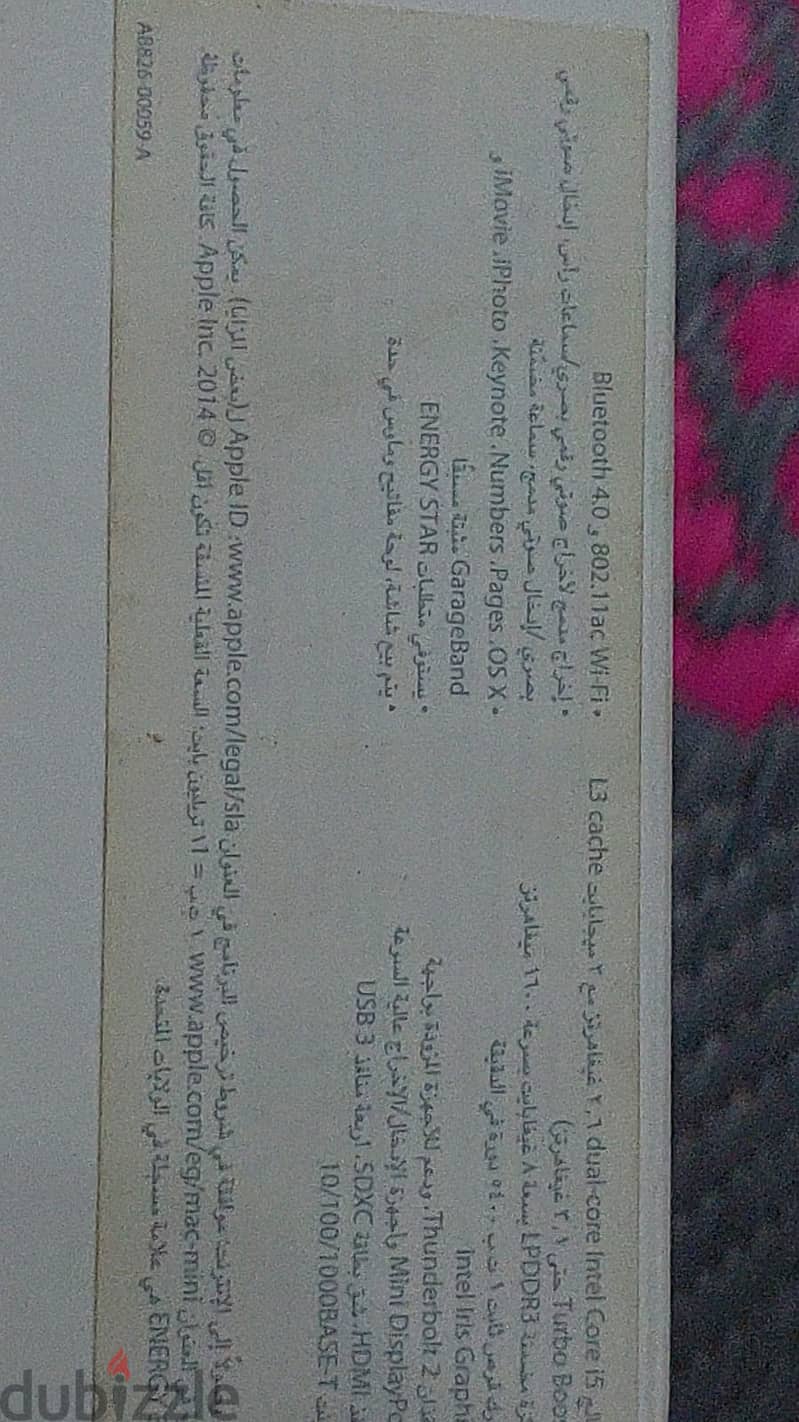 L3 cache ٢,٦ dual-core Intel Core i5 غيغاهرتز مع ٣ ميجابايت
Turbo Boo حتى ٣,١ غيغاهرتز)
LPDDR3 بسعة ٨ غيغابايت بسرعة ١٦٠٠ ميغاهرتز
قرص ثابت ١ ت.ب ٥٤٠٠ دورة في الدقيقة
Intel Iris Graph
Thunderbolt 2، ودعم للأجهزة المزودة بواجهة
Mini DisplayPo وأجهزة الإدخال/الإخراج عالية السرعة
HDMI، شق بطاقة SDXC، أربعة منافذ USB 3
10/100/1000BASE-T
• 802.11ac Wi-Fi و Bluetooth 4.0
• إخراج مدمج لإخراج صوتي رقمي بصري/سماعات رأس، إدخال صوتي رقمي
بصري/إدخال صوتي مدمج، سماعة مضمّنة
• OS X، Pages، Numbers، Keynote، iPhoto، iMovie و
GarageBand مثبتة مسبقًا
• يستوفي متطلبات ENERGY STAR
• يتم بيع شاشة، لوحة مفاتيح وماوس في حدة
إلى الإنترنت؛ موافقة في شروط ترخيص البرنامج في العنوان www.apple.com/legal/sla؛ Apple ID ل(بعض المزايا) يمكن الحصول في معلومات
العنوان www.apple.com/eg/mac-mini. ١ ت.ب = ١٢١ تريليون بايت؛ السعة الفعلية المنسقة تكون أقل. © 2014 Apple Inc. كافة الحقوق محفوظة.
ENERGY هي علامة مسجلة في الولايات المتحدة.
AB826-00959-A
dubizzle